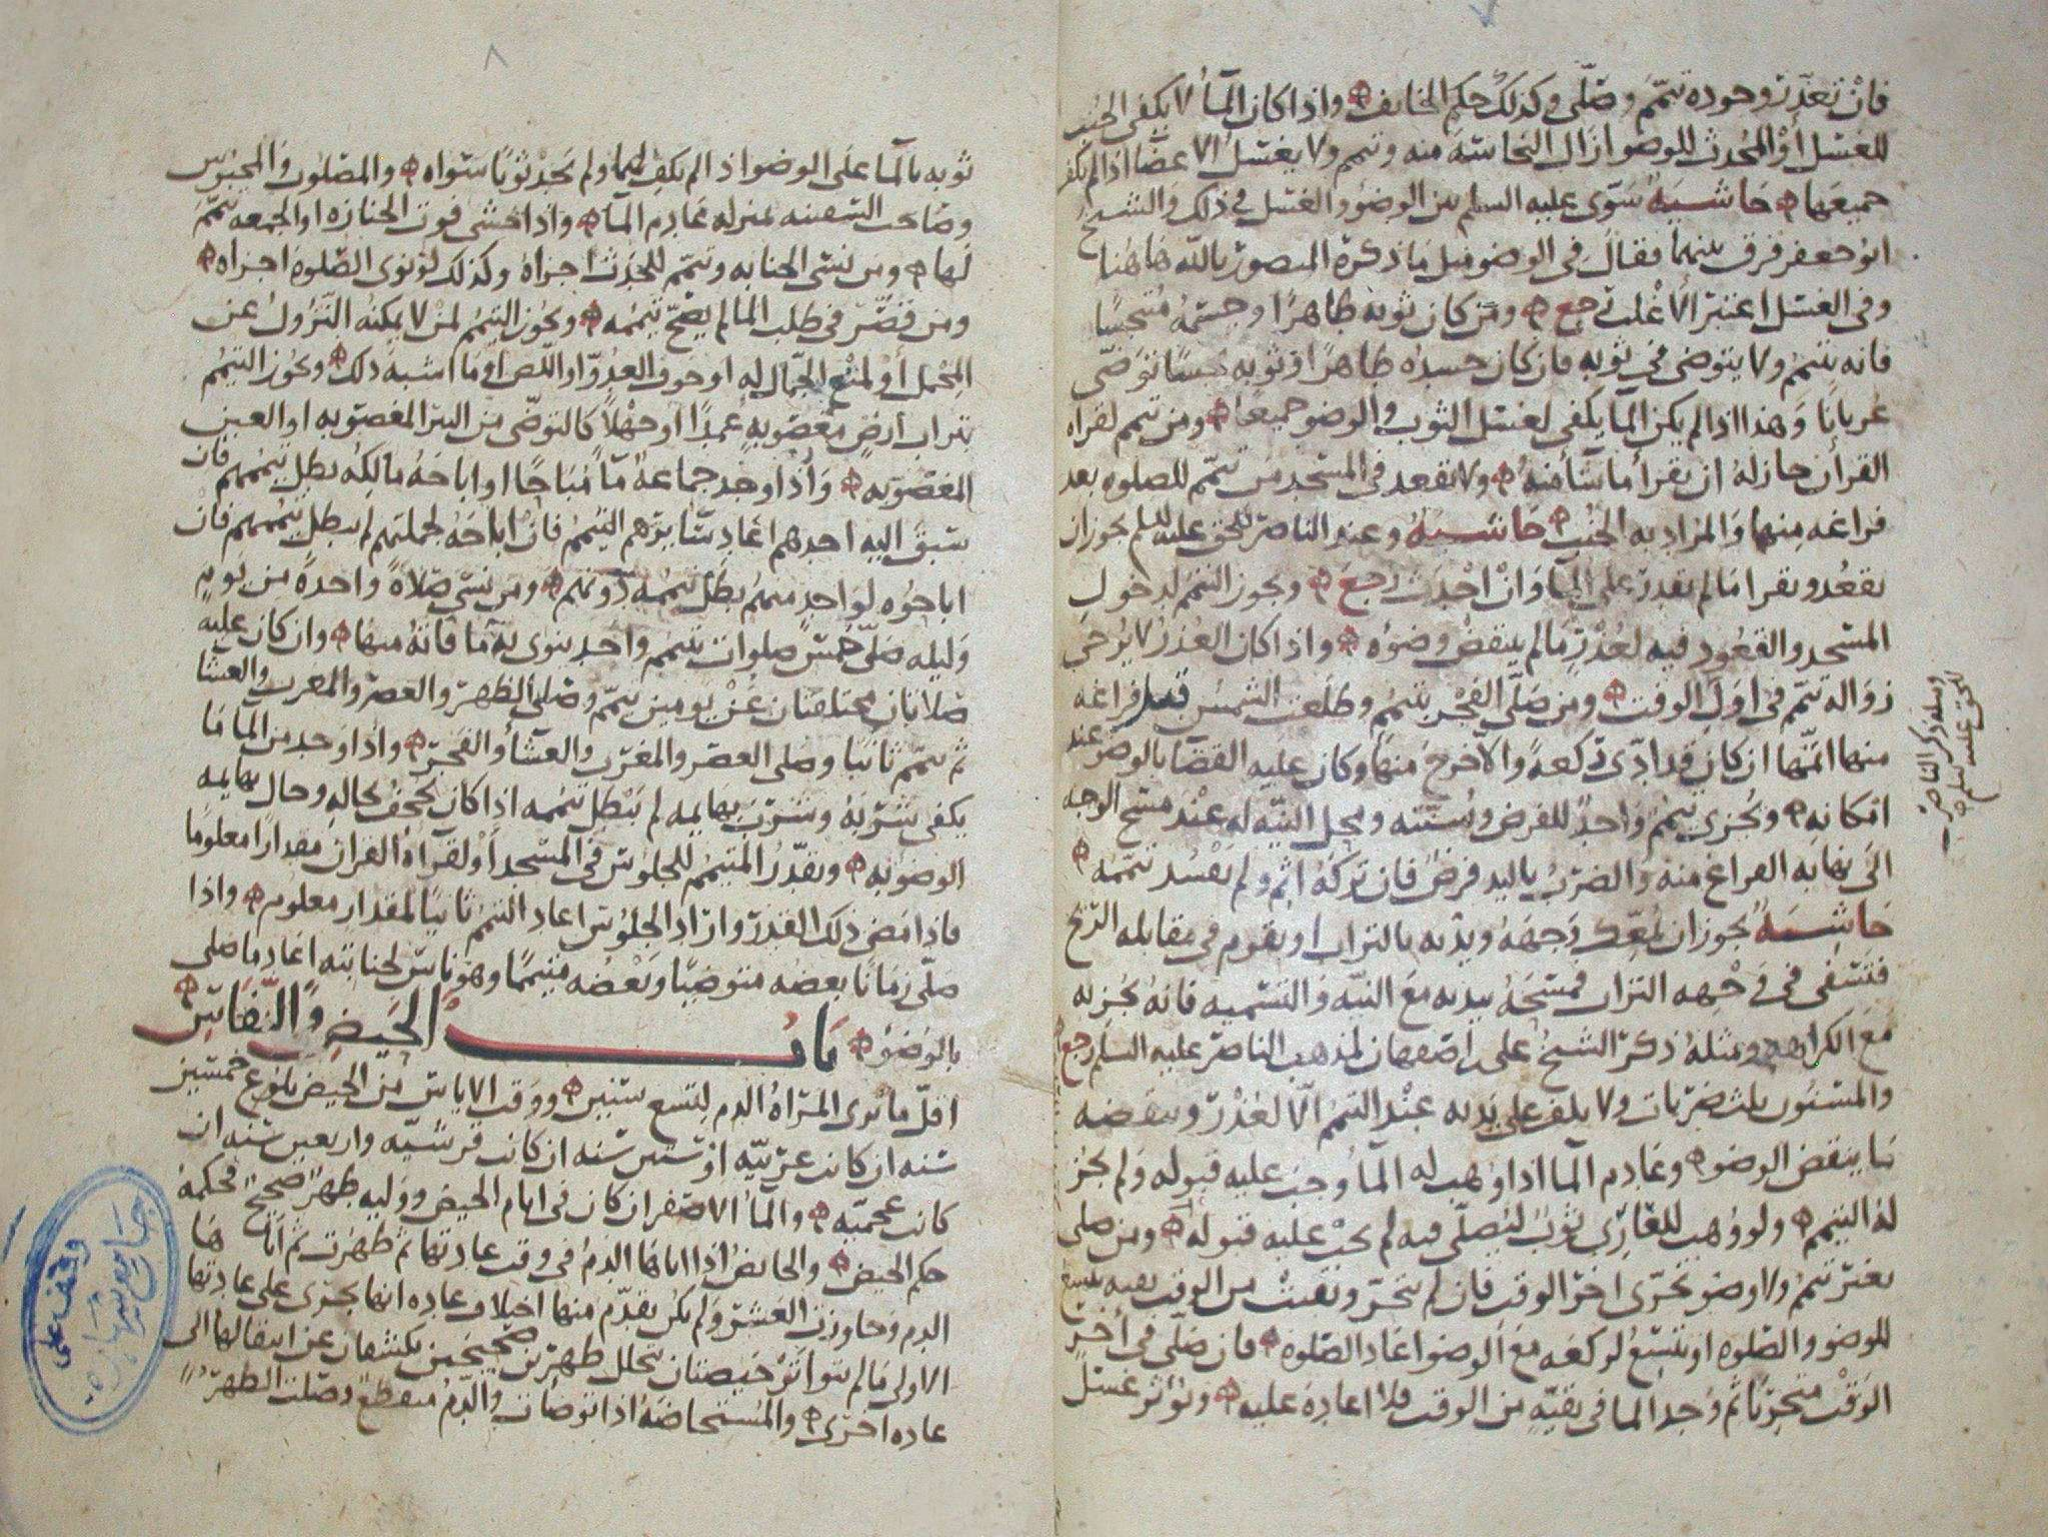 فان تعذر وجوده تيمم وصلى وكذلك حكم الخايف واذا كان المآ لا يكفى الجنب
للغسل أو المحدث للوضو ازال النجاسة منه وتيمم ولا يغسل الاعضا اذا لم يكف
جميعها حاشية سوى عليه السلم بين الوضو والغسل في ذلك والشيخ
ابو جعفر فرق بينهما فقال في الوضو مثل ما ذكره المنصور بالله هاهنا
وفي الغسل اعتبر الاغلب رجع ومن كان ثوبه طاهرا وجسمه متنجسا
فانه يتيمم ولا يتوضى في ثوبه فان كان جسده طاهرا وثوبه نجسا توضى
عريانا وهذا اذا لم يكن المآ يكفى لغسل الثوب والوضو جميعا ومن تيمم لقراه
القرآن جاز له ان يقرأ ما شآ منه ولا يقعد في المسجد من تيمم للصلوه بعد
فراغه منها والمراد به الجنب حاشية وعند الناصر للحق عليه السلم يجوز ان
يقعد ويقرا ما لم يقدر على المآ وان احدث رجع ويجوز التيمم لدخول
المسجد والقعود فيه لعذر ما لم ينتقض وضوه واذا كان العذر لا يرجى
زواله تيمم في اول الوقت ومن صلى الفجر بتيمم وطلعت الشمس قبل فراغه
منها اتمها ان كان قد ادى ركعة والا خرج منها وكان عليه القضا بالوضو عند
امكانه ويجزى تيمم واحد للفرض وسنته ومحل النيه له عند مسح الوجه
الى نهايه الفراغ منه والضرب باليد فرض فان تركه اثم ولم يفسد تيممه
حاشية يجوز ان يمعك وجهه ويديه بالتراب او يقوم في مقابله الريح
فتسفى في وجهه التراب فمسحه بيديه مع النيه والتسميه فانه يجزيه
مع الكراهه ومثله ذكر الشيخ على اصفهان لمذهب الناصر عليه السلم رجع
والمسنون ثلث ضربات ولا يلف على يديه عند التيمم الا لعذر وينقضه
ما ينقض الوضو وعادم المآ اذا وهب له المآ وجب عليه قبوله ولم يجز
له التيمم ولو وهب للعارى ثوب ليصلى فيه لم يجب عليه قبوله ومن صلى
بغير تيمم ولا وضو تحرى اخر الوقت فان لم يتحر وبقيت من الوقت بقيه تتسع
للوضو والصلوه او تتسع لركعه مع الوضو اعاد الصلوة فان صلى في أخر
الوقت متحريا ثم وجد الما في بقيه من الوقت فلا اعادة عليه ويؤثر غسل
ومثله ذكر الناصر
للحق عليه السلم
ثوبه بالمآ على الوضو اذا لم يكف لهما ولم يجد ثوبا سواه والمصلوب والمحبوس
وصاحب السفينه بمنزله عادم المآ واذا خشى فوت الجنازه او الجمعه تيمم
لها ومن نسى الجنابه وتيمم للحدث اجزاه وكذلك لو نوى الصلوة اجزاه
ومن قصر في طلب المآ لم يصح تيممه ويجوز التيمم لمن لا يمكنه النزول عن
المحمل أو لمنع الجمال له او خوف العدو او اللص او ما اشبه ذلك ويجوز التيمم
بتراب أرض مغصوبة عمدا او جهلا كالتوضى من البئر المغصوبه او العين
المغصوبه وأذا وجد جماعة مآ مباحا او اباحه مالكه بطل تيممهم فان
سبق اليه احدهم اعاد سايرهم التيمم فان اباحه لجملتهم لم يبطل تيممهم فان
اباحوه لواحد منهم بطل تيممه دونهم ومن نسى صلاة واحدة من يوم
وليله صلى خمس صلوات بتيمم واحد ينوى به ما فاته منها وان كان عليه
صلاتان مختلفتان عن يومين تيمم وصلى الظهر والعصر والمغرب والعشا
ثم تيمم ثانيا وصلى العصر والمغرب والعشآ والفجر واذا وجد من المآ ما
يكفى شربه وشرب بهايمه لم يبطل تيممه اذا كان يجحف بحاله وحال بهايمه
الوضو به ويقدر المتيمم للجلوس في المسجد او لقرآة القران مقدارا معلوما
فاذا مضى ذلك القدر واراد الجلوس اعاد التيمم ثانيا لمقدار معلوم واذا
صلى زمانا بعضه متوضيا وبعضه متيمما وهو ناس لجنابته اعاد ما صلى
بالوضو باب الحيض والنفاس
اقل ما ترى المراة الدم لتسع سنين ووقت الاياس من الحيض بلوغ خمسين
سنه ان كانت عربيه او ستين سنه ان كانت قرشيه واربعين سنه ان
كانت عجميه والمآ الاصفر ان كان في ايام الحيض ووليه طهر صحيح فحكمه
حكم الحيض والحايض اذا اتاها الدم في وقت عادتها ثم طهرت ثم اتاها
الدم وجاوزت العشر ولم يكن تقدم منها اختلاف عاده انها تجرى على عادتها
الاولى ما لم تتواتر حيضتان تخلل طهرين صحيحين يكشفان عن انتقالها الى
عاده اخرى والمستحاضة اذا توضات والدم منقطع وصلت الظهر
وقف على